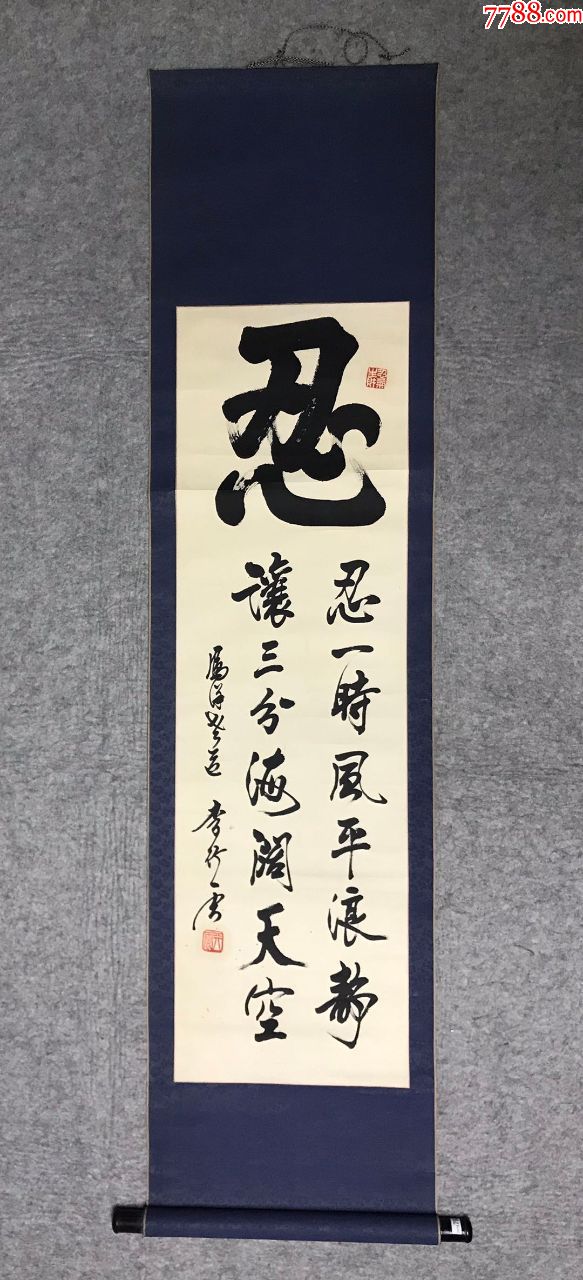 7788.com
忍
忍一時風平浪静
讓三分海闊天空